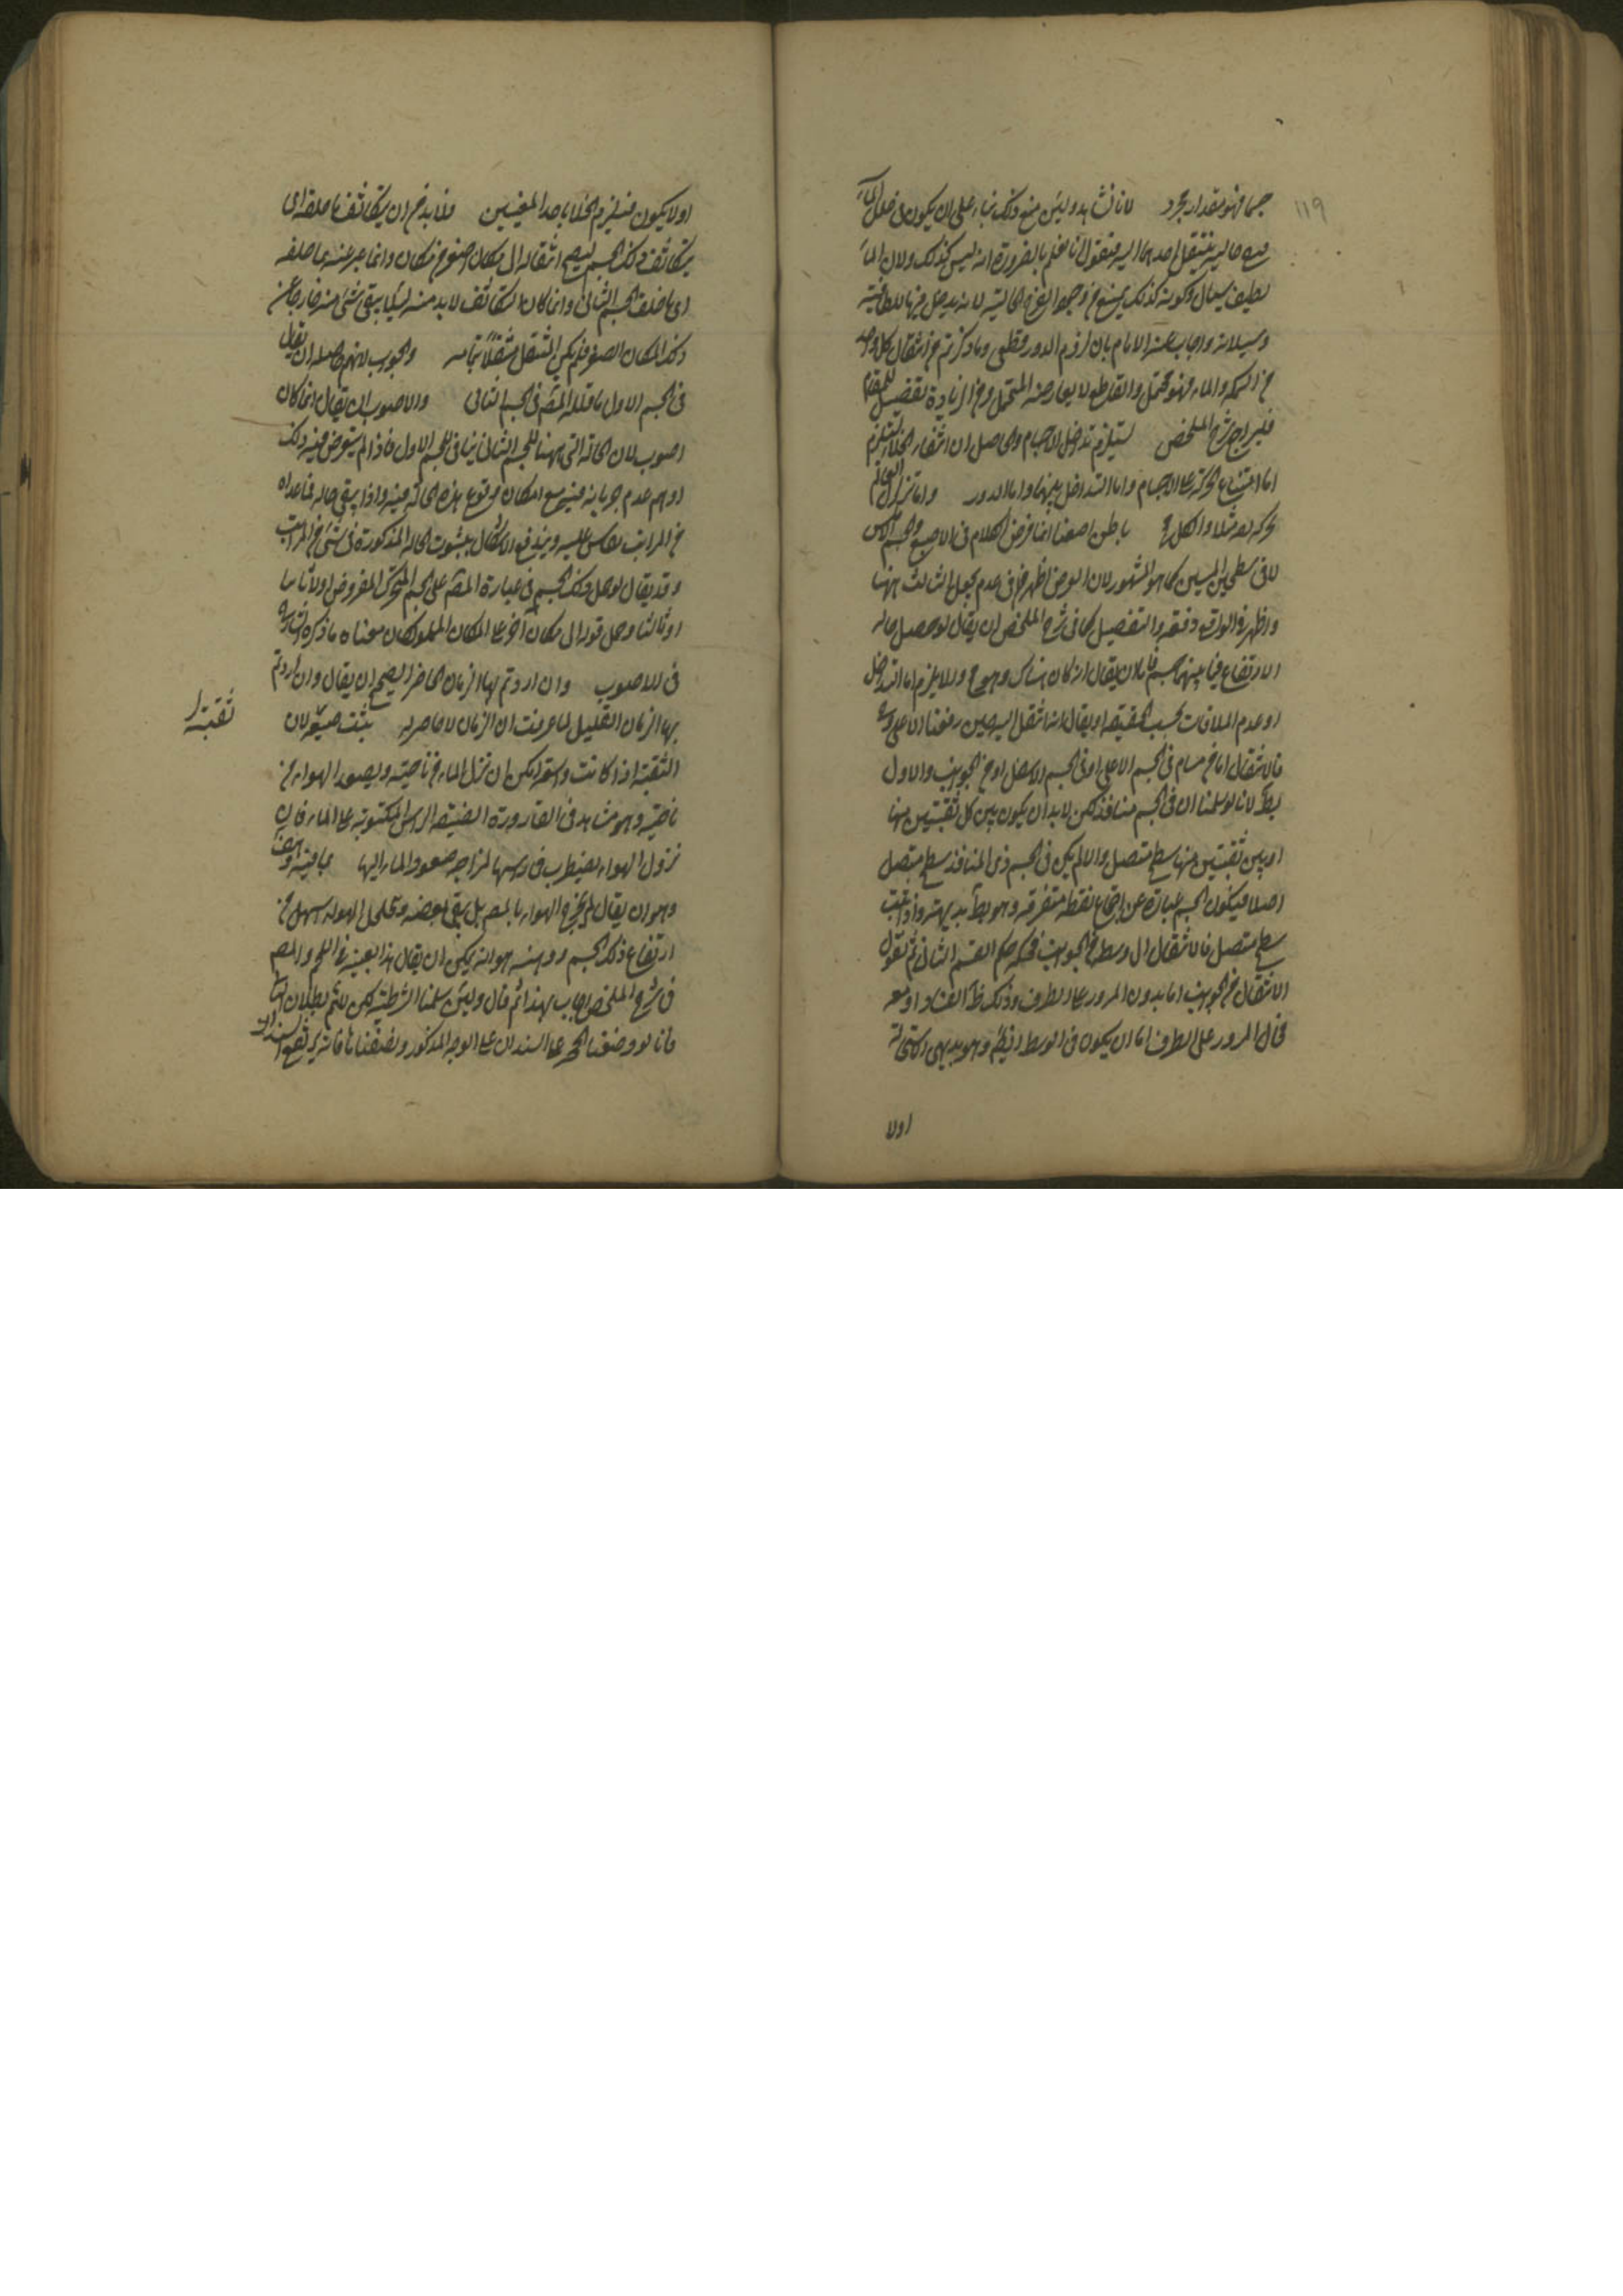 ١١٩
جسما فهو مقدار مجرد لانا نشاهد ولئن منع ذلك بناء على ان يكون فى خلل الماء
فرج خالية ينتقل احدهما اليه فنقول انا نعلم بالضرورة انه ليس كذلك ولان الماء
لطيف سيال وكونه كذلك يمنع وجود الفرج الخالية لانه يدخل فيها للطافته
وسيلانه واجاب عنه الامام بان لزوم الدور قطعى وما ذكرتم من انتقال كل واحد
من السمكة والماء فهو محتمل والقاطع لا يعارضه المحتمل ومن اراد زيادة تفصيل للمقام
فليراجع شرح الملخص يستلزم تداخل الاجسام والحاصل ان انتفاء الخلاء يستلزم
اما امتناع الحركة على الاجسام واما التداخل بينها واما الدور واما تزلزل العالم
بحركة بقة مثلا والكل مح باطن اصبعنا انما فرض الكلام فى الاصبع والجسم
لا فى سطحين املسين كما هو المشهور لان الغرض اظهر فى عدم الثالث بينهما
واظهر فى الوقوع دفعة والتفصيل كما فى شرح الملخص ان يقال لو حصل حالة
الارتفاع فيما بينهما جسم فاما ان يقال انه كان هناك وهو مح والا يلزم اما التداخل
او عدم الملاقات بحسب الحقيقة او يقال انه انتقل اليه حين رفعنا الاعلى وهو
فالانتقال اما من مسام فى الجسم الاعلى او فى الجسم الاسفل او من الجوانب والاول
بط لانا لو سلمنا ان فى الجسم منافذ لكن لا بد ان يكون بين كل ثقبتين منها
او بين ثقبتين منها سطح متصل والا لم يكن فى الجسم ذى المنافذ سطح متصل
اصلا فيكون الجسم عبارة عن اجتماع نقط متفرقة وهو بط بديهة واذا ثبت
سطح متصل فالانتقال الى وسطه من الجوانب فحكمه حكم القسم الثانى ثم نقول
الانتقال من الجوانب اما بدون المرور على الطرف وذلك ظ الفساد او معه
فحال المرور على الطرف اما ان يكون فى الوسط ايضا وهو بديهى الاستحالة
اولا
اولا يكون فيلزم الخلاء باحد المعنيين فلا بد من ان يتكاثف ما خلفه اى
يتكاثف ذلك الجسم ليصح انتقاله الى مكان اصغر من مكانه وانما عبر عنه بما خلفه
اى ما خلف الجسم الثانى وانما كان التكاثف لا بد منه لئلا يبقى شئ منه خارجا عن
ذلك المكان الاصغر فلم يكن المنتقل منتقلا بتمامه والجواب حاصله ان يقال
فى الجسم الاول ما قاله المص فى الجسم الثانى والاصوب ان يقال انما كان
اصوب لان الحالة التى ههنا للجسم الثانى ينافى للجسم الاول فاذا لم يتعرض فيه ذلك
اوهم عدم جريانه فيه مع امكان وقوع هذه الحالة فيه واذا بقى حاله فما عداه
من المراتب يقاس عليه ويندفع الاشكال بثبوت الحالة المذكورة فى شئ من المراتب
وقد يقال لو حمل ذلك الجسم فى عبارة المص على الجسم المتحرك المفروض اولا ثانيا
او ثالثا وحمل قوله الى مكان آخر على المكان المملو كان معناه ما ذكره الشارح
فى الاصوب وان اردتم بها الزمان الحاضر الصحيح ان يقال وان اردتم
بها الزمان القليل لما عرفت ان الزمان لا حاضر له ثبتت ضيقة لان
ثقبة
الثقبة اذا كانت واسعة امكن ان ينزل الماء من ناحية ويصعد الهواء من
ناحية وهو مشاهد فى القارورة الضيقة الراس المكبوبة على الماء فان
نزول الهواء يضطرب فى راسها لمزاحمة صعود الماء اليها
وهو ان يقال لم يخرج الهواء بالمص بل بقى بعضه وتخلخل الهواء اسهل من
ارتفاع ذلك الجسم ووهنه هو انه يمكن ان يقال هذا بعينه فى اللحم والمص
فى شرح الملخص اجاب بهذا ثم قال ولئن سلمنا الشرطية لكن لا نم بطلان التالى
فانا لو وضعنا المحجمة على السندان على الوجه المذكور ومصصناها فانه يرتفع السندان